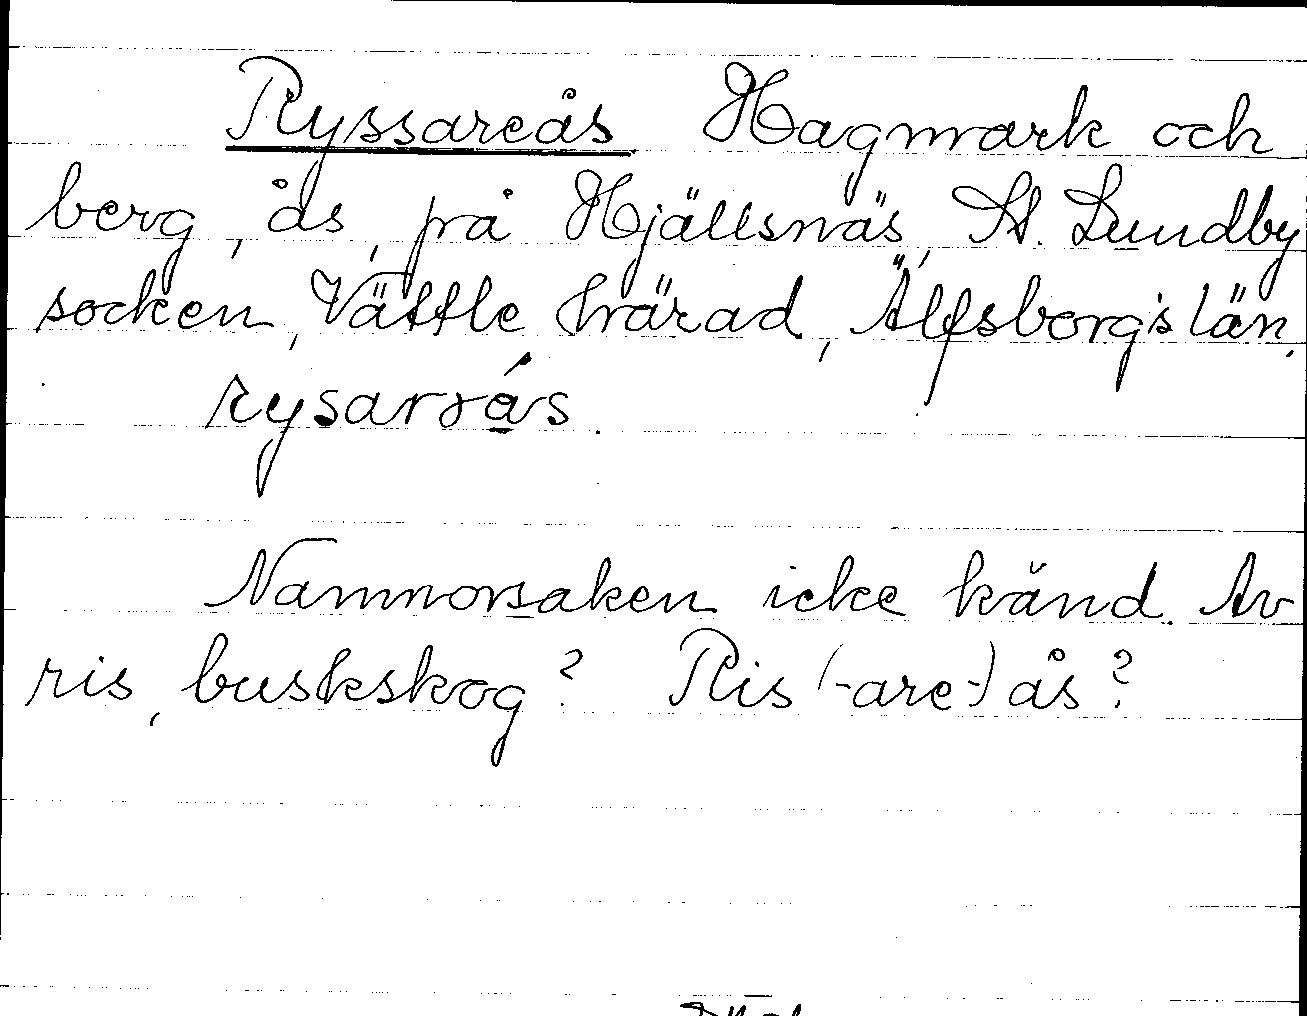 Ryssareås Hagmark och
berg, ås, på Hjällsnäs, St. Lundby
socken, Vättle härad, Älfsborg's län.
rysarɤás.
Namnorsaken icke känd. Av
ris, buskskog? Ris (-are-) ås?